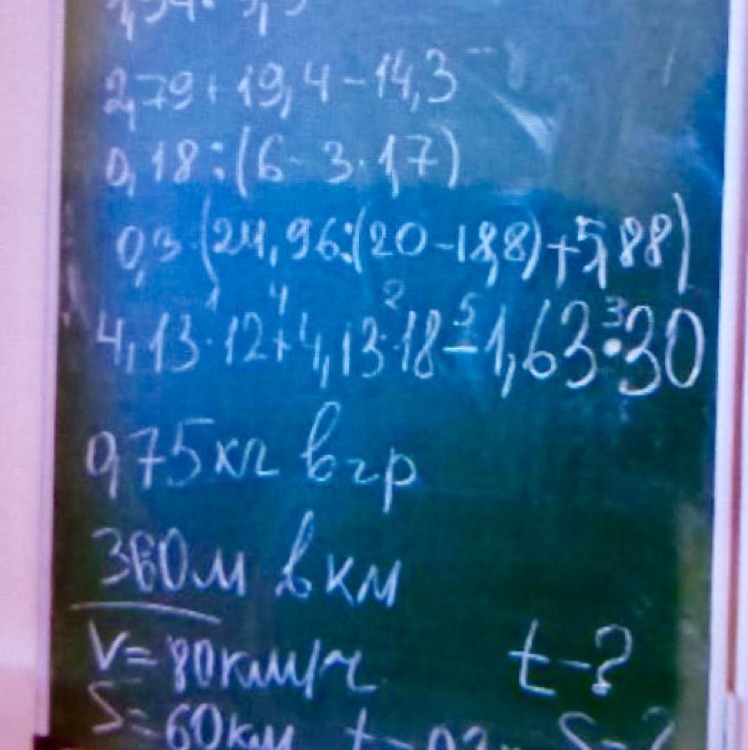 2,79+19,4-14,3
0,18:(6-3·1,7)
0,3·(24,96:(20-18,8)+5,88)
1 4 2 5 3
4,13·12+4,13·18-1,63·30
0,75кг в гр
360м в км
V=80км/ч t-?
S=60км S-?